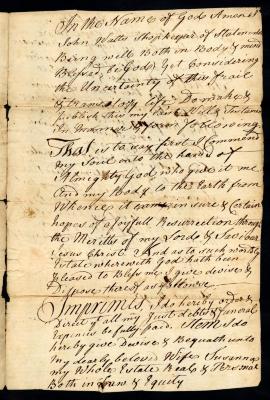 In the Name of God Amen I
John Watts Shopkeeper of
Being well Both in Body & mind
Blessed be God; yet Considering
the Uncertainty of this frail
& transitory Life Do make &
publish this my Last Will & Testament
In manner & form following
That is to say first I Commend
my Soul into the hand of
Almighty God who give it me
And my Body to the Earth from
Whence it came in sure & Certain
hopes of a Joyfull Resurrection through
the Meritts of my Lord & Saviour
Jesus Christ And as to such worldly
Estate wherewith God hath been
pleased to Bless me I give devise &
Dispose thereof as follows
Imprimis I do hereby order &
Direct all my Just debts & funeral
Expences be fully paid. Item I do
hereby give Devise & Bequeath unto
my dearly beloved Wife Susanna
my Whole Estate Real & Personal
Both in Law & Equity